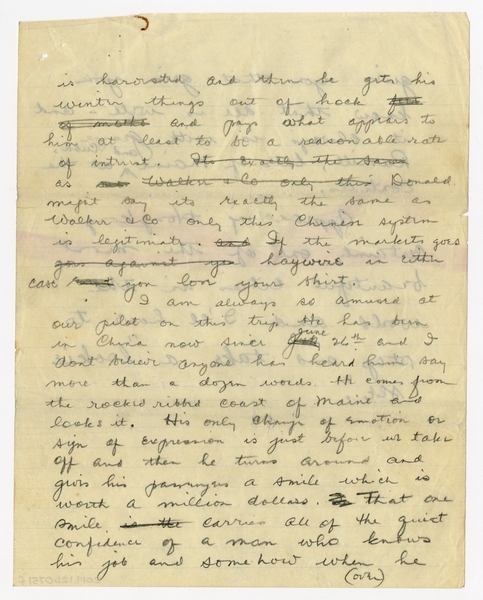 is harvested and then he gets his
winter things out of hock full
of moths and pays what appears to
him at least to be a reasonable rate
of interest. Its exactly the same
as Walker & Co only this Donald
might say its exactly the same as
Walker & Co only this Chinese system
is legitimate. and If the markets goes
goes against you haywire in either
case you lose your shirt.
I am always so amused at
our pilot on this trip. He has been
in China now since June 26th and I
dont believe anyone has heard him say
more than a dozen words. He comes from
the rocked ribbed coast of Maine and
looks it. His only change of emotion or
sign of expression is just before we take
off and then he turns around and
gives his passengers a smile which is
worth a million dollars. That one
smile is the carries all of the quiet
confidence of a man who knows
his job and somehow when he
(over)